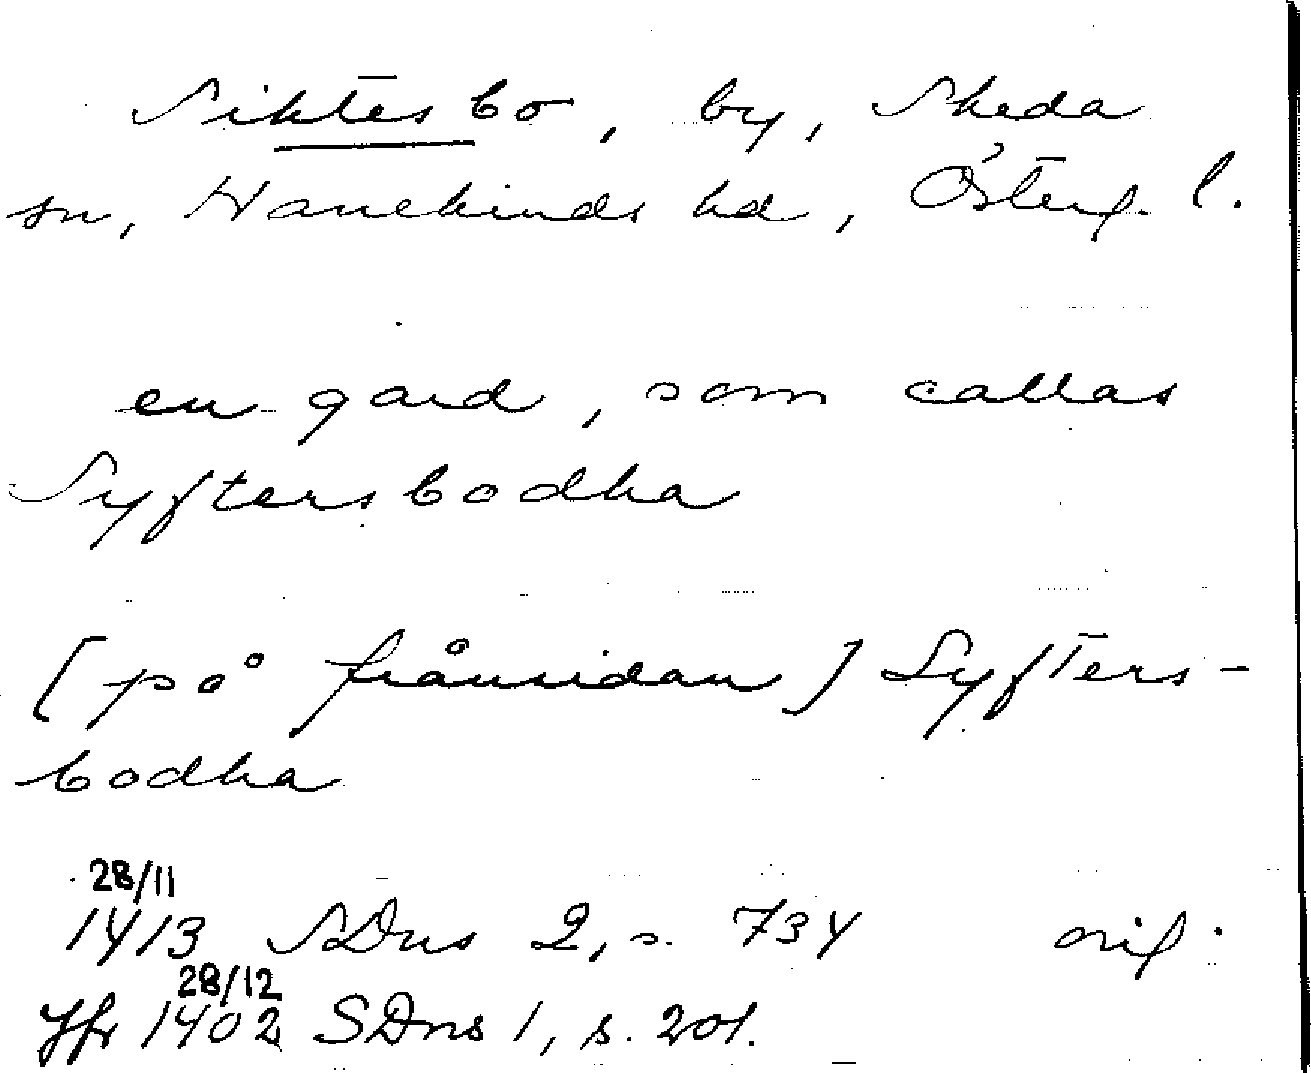 Siktesbo, by, Skeda
sn, Hanekinds hd, Österg. l.
en gard, som callas
Syftersbodha
[på frånsidan] Syfters-
bodha
28/11
1413 SDns 2, s. 734 orig.
28/12
Jfr 1402 SDns 1, s. 201.